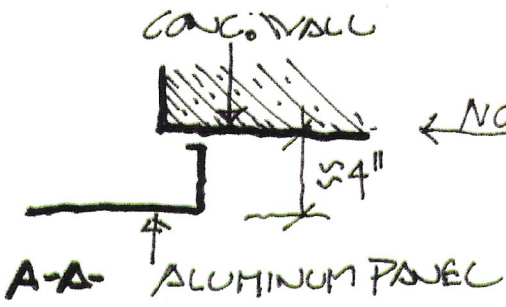 CONC. WALL
NO
≈4"
A-A- ALUMINUM PANEL